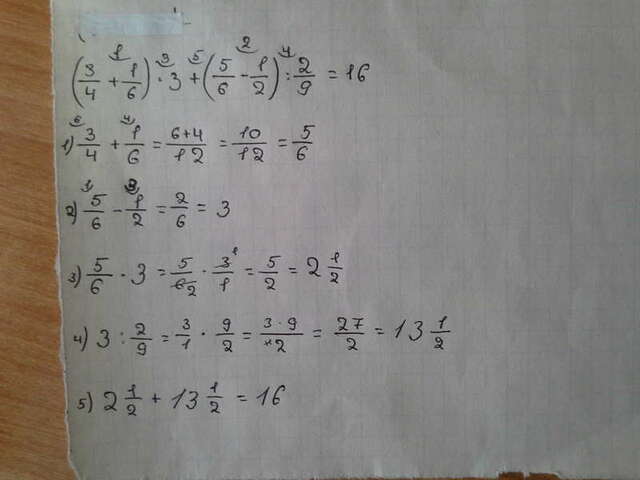 (3/4 + 1/6) · 3 + (5/6 - 1/2) : 2/9 = 16
1) 3/4 + 1/6 = 6+4/12 = 10/12 = 5/6
2) 5/6 - 1/2 = 2/6 = 3
3) 5/6 · 3 = 5/6 2 · 3 1/1 = 5/2 = 2 1/2
4) 3 : 2/9 = 3/1 · 9/2 = 3·9/2 = 27/2 = 13 1/2
5) 2 1/2 + 13 1/2 = 16